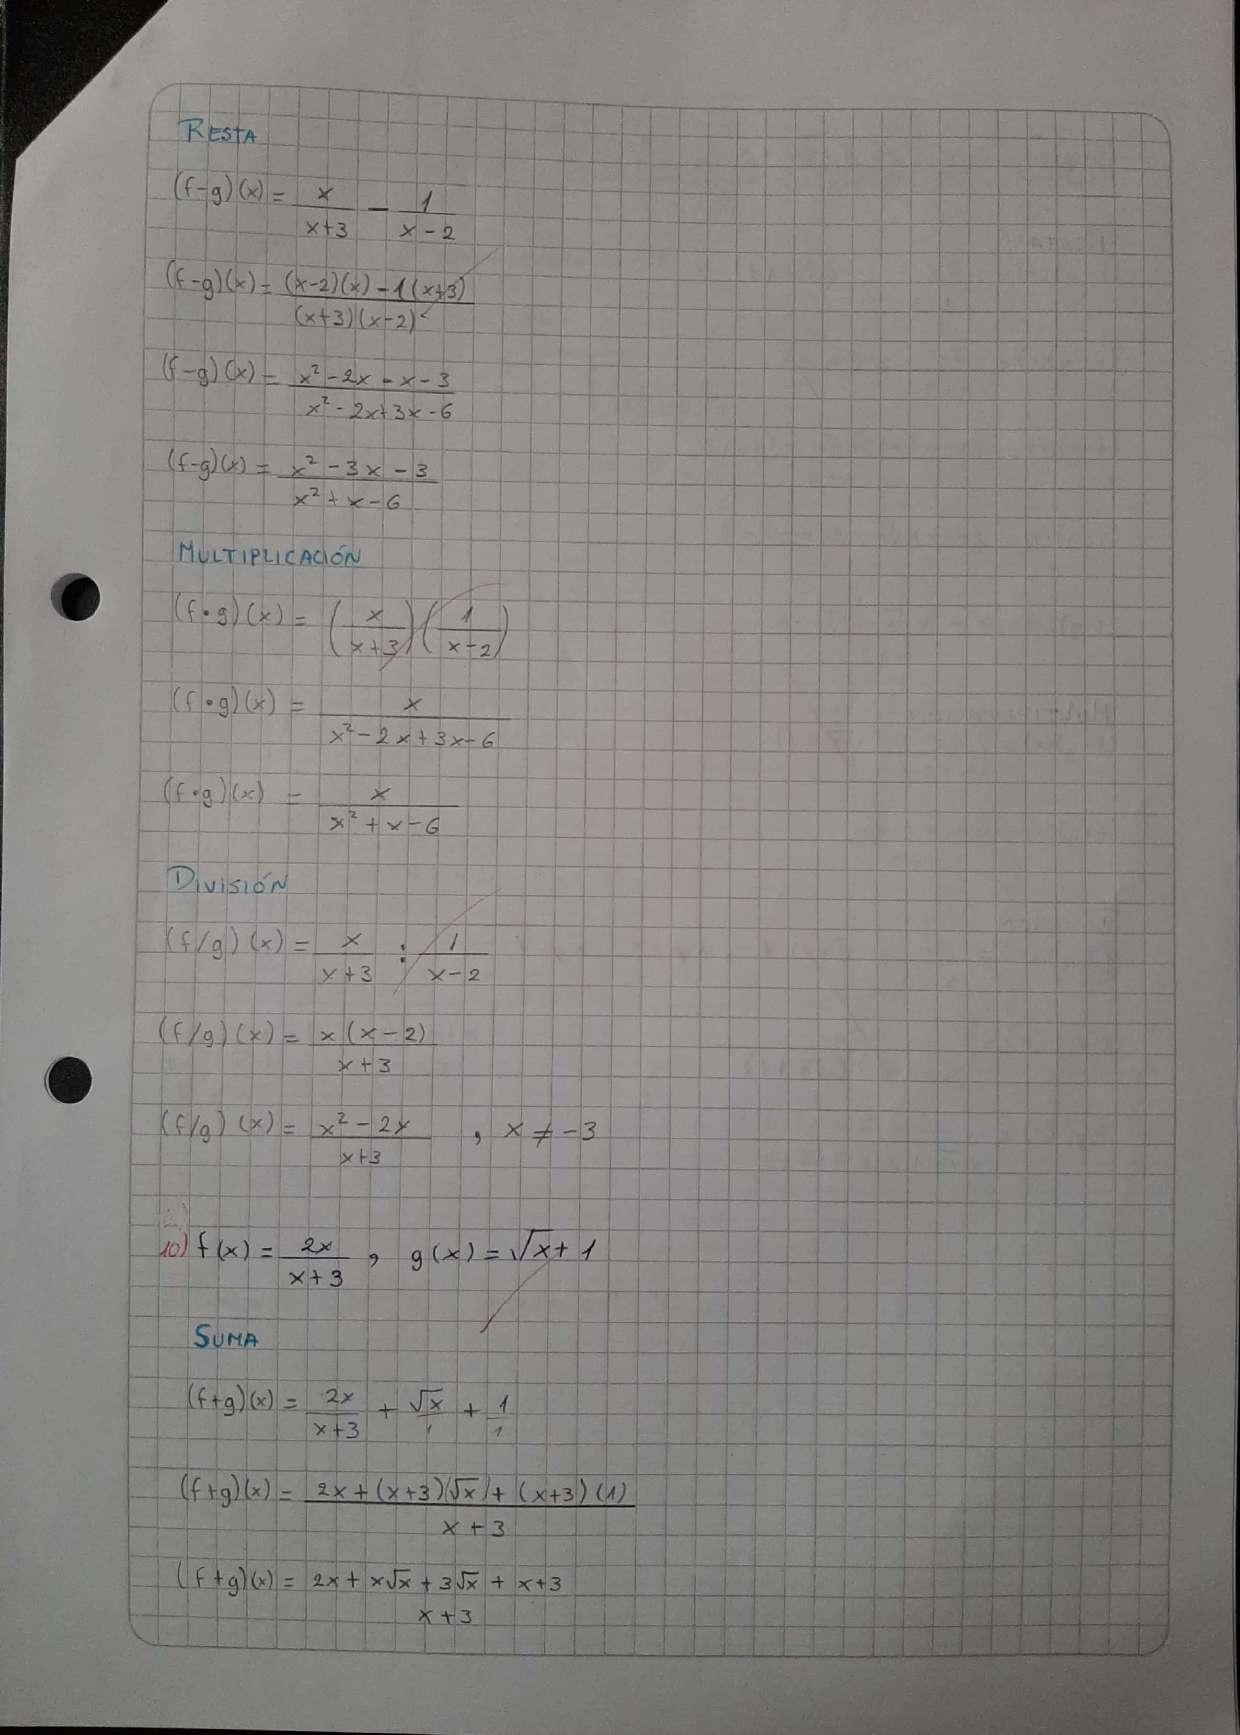 RESTA
(f-g)(x) = x/(x+3) - 1/(x-2)
(f-g)(x) = ((x-2)(x) - 1(x+3))/((x+3)(x-2))
(f-g)(x) = (x² - 2x - x - 3)/(x² - 2x + 3x - 6)
(f-g)(x) = (x² - 3x - 3)/(x² + x - 6)
MULTIPLICACIÓN
(f•g)(x) = (x/(x+3))(1/(x-2))
(f•g)(x) = x/(x² - 2x + 3x - 6)
(f•g)(x) = x/(x² + x - 6)
DIVISIÓN
(f/g)(x) = x/(x+3) : 1/(x-2)
(f/g)(x) = x(x-2)/(x+3)
(f/g)(x) = (x² - 2x)/(x+3) , x ≠ -3
10) f(x) = 2x/(x+3) , g(x) = √x + 1
SUMA
(f+g)(x) = 2x/(x+3) + √x/1 + 1/1
(f+g)(x) = (2x + (x+3)(√x) + (x+3)(1))/(x+3)
(f+g)(x) = 2x + x√x + 3√x + x+3
x+3